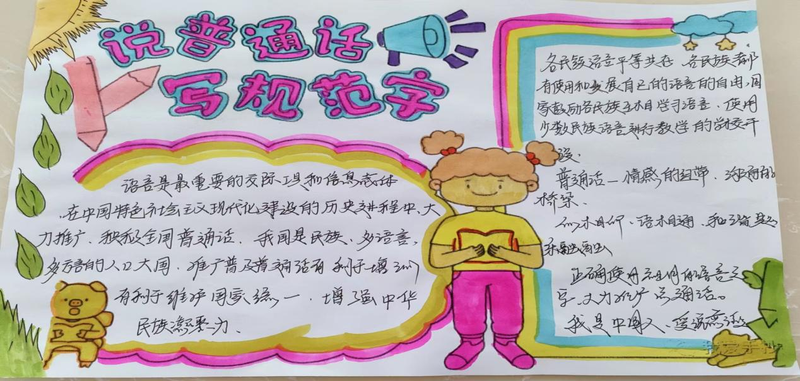 说普通话
写规范字
语言是最重要的交际工具和信息载体
在中国特色社会主义现代化建设的历史进程中,大
力推广、积极普及全国普通话、我国是民族、多语言、
多方言的人口大国,推广普及普通话有利于增
有利于维护国家统一,增强中华
民族凝聚力.
各民族语言平等共存,各民族都
有使用和发展自己的语言的自由,国
家鼓励各民族互相学习语言、使用
少数民族语言进行教学的学校
普通话——情感的纽带、沟通的
桥梁
正确使用祖国的语言文
字、大力推广普通话。
我是中国人、